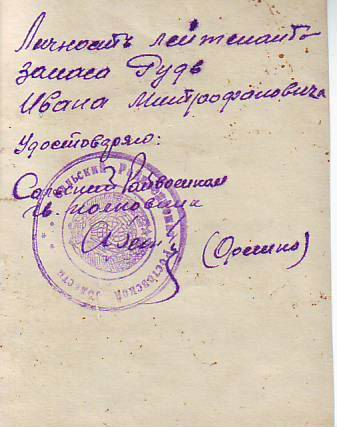 Личность лейтенанта
запаса Рудь
Ивана Митрофановича
Удостоверяю:
Сальский Райвоенком
гв. полковник
(Орешко)
Ростовской области